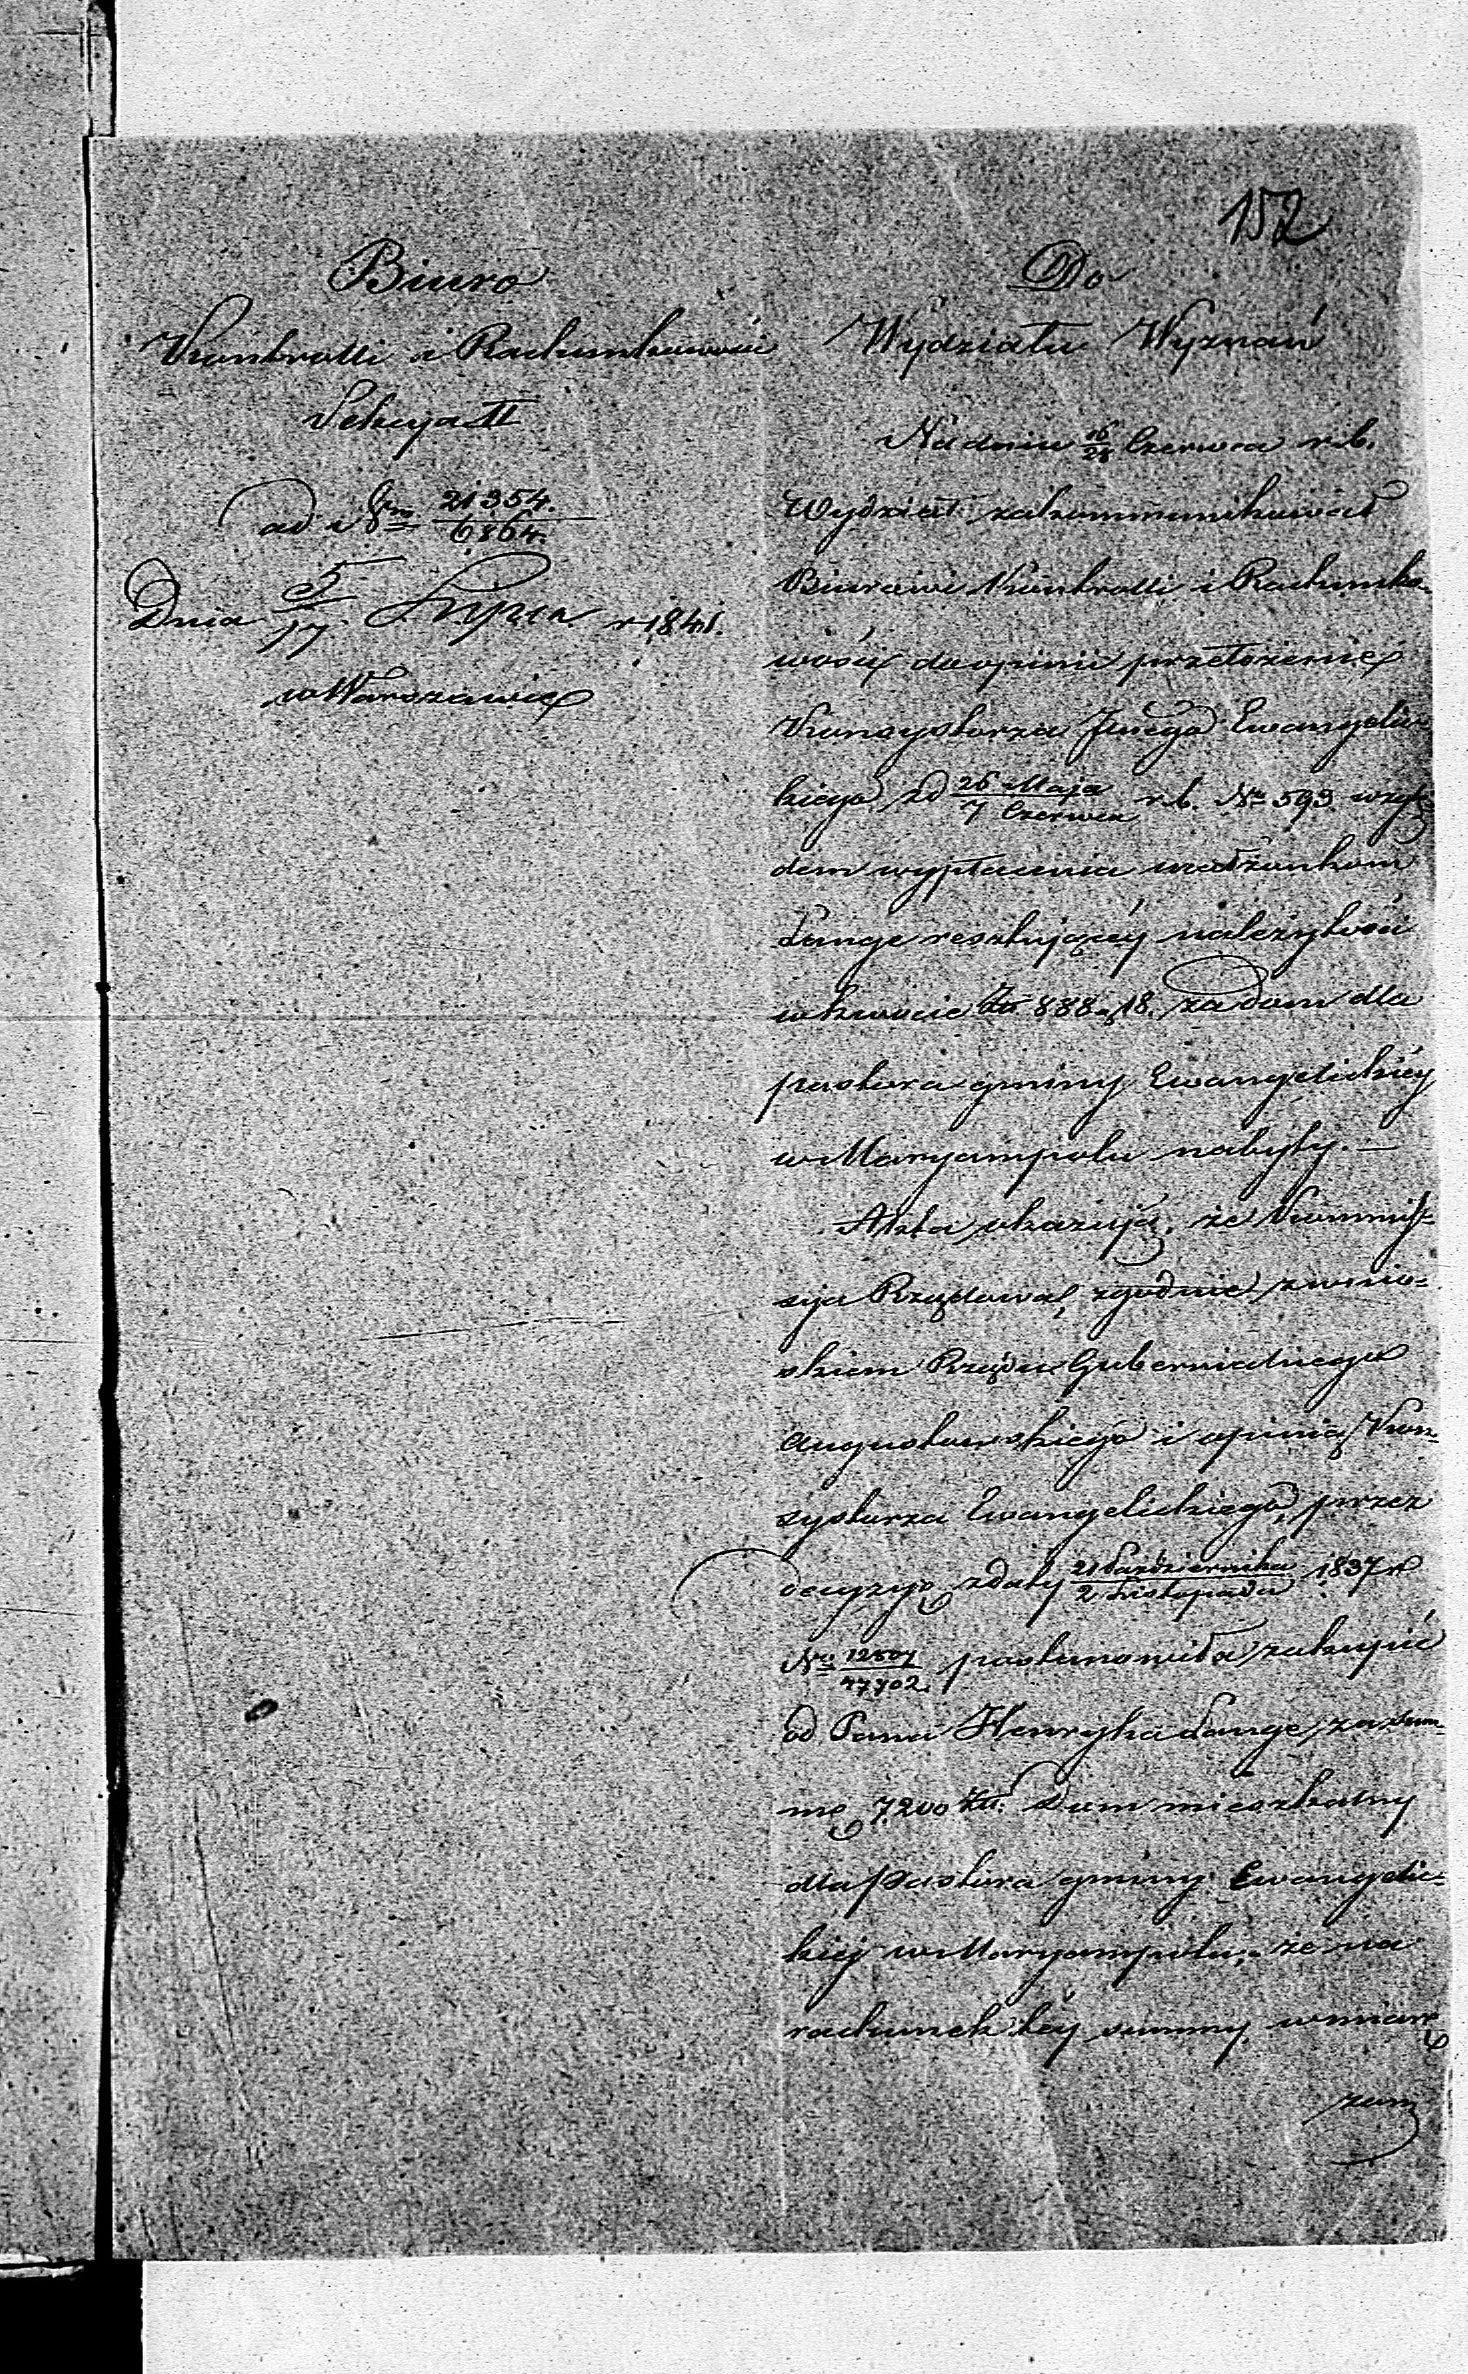 152
Biuro
Kontrolli i Rachunkowości
Sekcya II
ad 21354.
6864.
Dnia 5/17 Lipca r 1841.
w Warszawie
Do
Wydziału Wyznań
Na dniu 16/28 Czerwca r.b.
Wydział zakommunikował
Biurowi Kontrolli i Rachunko-
wości do opinii przełożenie
Konsystorza Ewangelic-
kiego z d 26 Maja/7 Czerwca r.b. No 593 wzglę-
dem wypłacenia małżonkom
Lange resztującéy należytości
w kwocie Zł. 888 g 18. za dom dla
pastora gminy Ewangelickiéy
w Maryampolu nabyty. —
Akta okazują, że Kommis-
sya Rządowa, zgodnie z wnio-
skiem Rządu Gubernialnego
Augustowskiego i opinią Kon-
systorza Ewangelickiego, przez
decyzyę z daty 21 Października/2 Listopada 1837 r
No 12507/47702. postanowiła zakupić
od Pana Henryka Lange, za sum-
mę 7200 Zł. Dom mieszkalny
dla Pastora gminy Ewangelic-
kiej w Maryampolu; że na
rachunek téy summy, w miarę